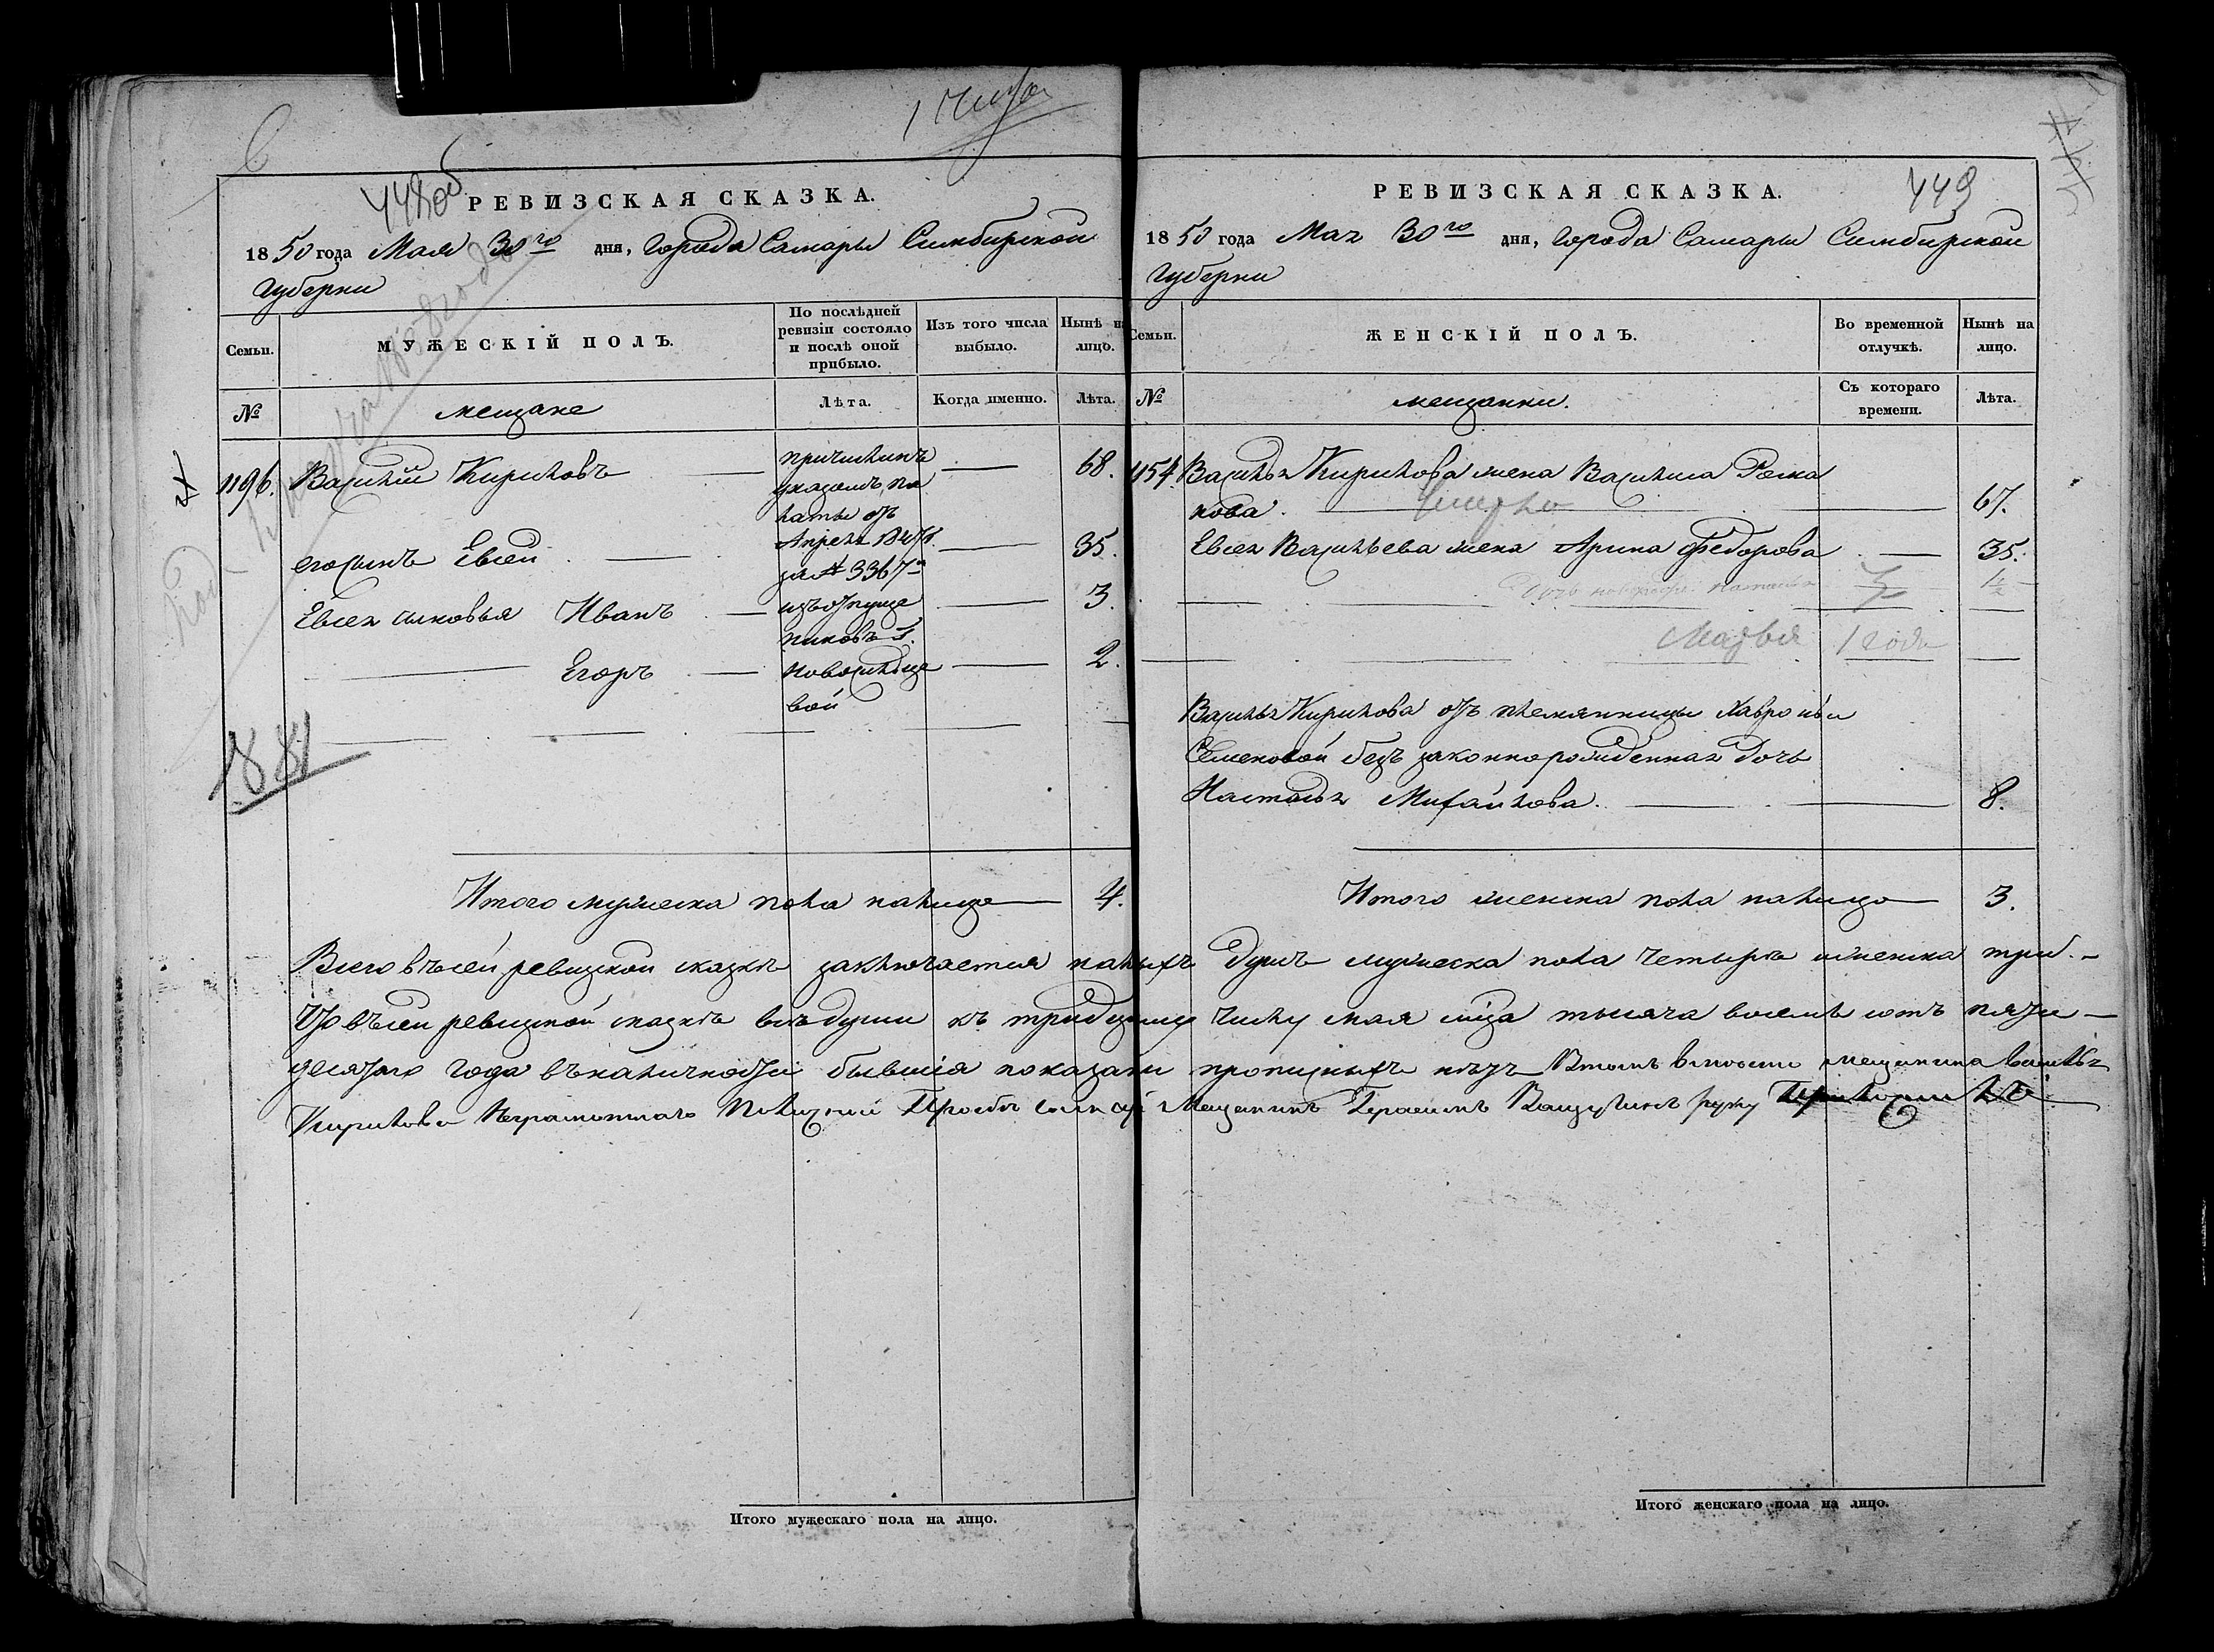 448об
РЕВИЗСКАЯ СКАЗКА.
1850 года Мая 30го дня, Города Самары Симбирской
Губерни
Семьи.
МУЖЕСКІЙ ПОЛЪ.
По послѣдней ревизіи состояло и послѣ оной прибыло.
Изъ того числа выбыло.
Нынѣ на лицо.
№
мещане
Лѣта.
Когда именно.
Лѣта.
1196. Василий Кириловъ — 68.
причисленъ
указомъ па
латы отъ
Апреля
за № 3367м
изъ отпуще
никовъ Г.
Новосильце
вой
его сынъ Евсей — 35.
Евсея сыновья Иванъ — 3.
Егоръ — 2.
1881
Итого мужеска пола налицо — 4.
449
РЕВИЗСКАЯ СКАЗКА.
1850 года Мая 30го дня, Города Самары Симбирской
Губерни
Семьи.
ЖЕНСКІЙ ПОЛЪ.
Во временной отлучкѣ.
Нынѣ на лицо.
№
мещанки.
Съ котораго времени.
Лѣта.
1154. Василья Кирилова жена Василиса Рома
нова. — 67.
Евсея Васильева жена Арина Федорова — 35.
Марья 1 года
Василья Кирилова отъ племянницы Хавроньи
Семеновой безъ законнорожденная дочь
Настасья Михайлова. — 8.
Итого женска пола налицо — 3.
Всего въ сей ревизской сказкѣ заключается налицо душъ мужеска пола четыре женска три. —
Что въ сей ревизкой сказкѣ все души къ тридцатому числу мая мца тысяча восемь сотъ пяти —
десятаго года въ наличности бывшія показаны прописныхъ нѣтъ Въ томъ вместо мещанина Василья
Кирилова Неграмотнаго По Личной Прозбе Мещанинъ Герасимъ руку Приложилъ
Итого мужескаго пола на лицо.
Итого женскаго пола на лицо.